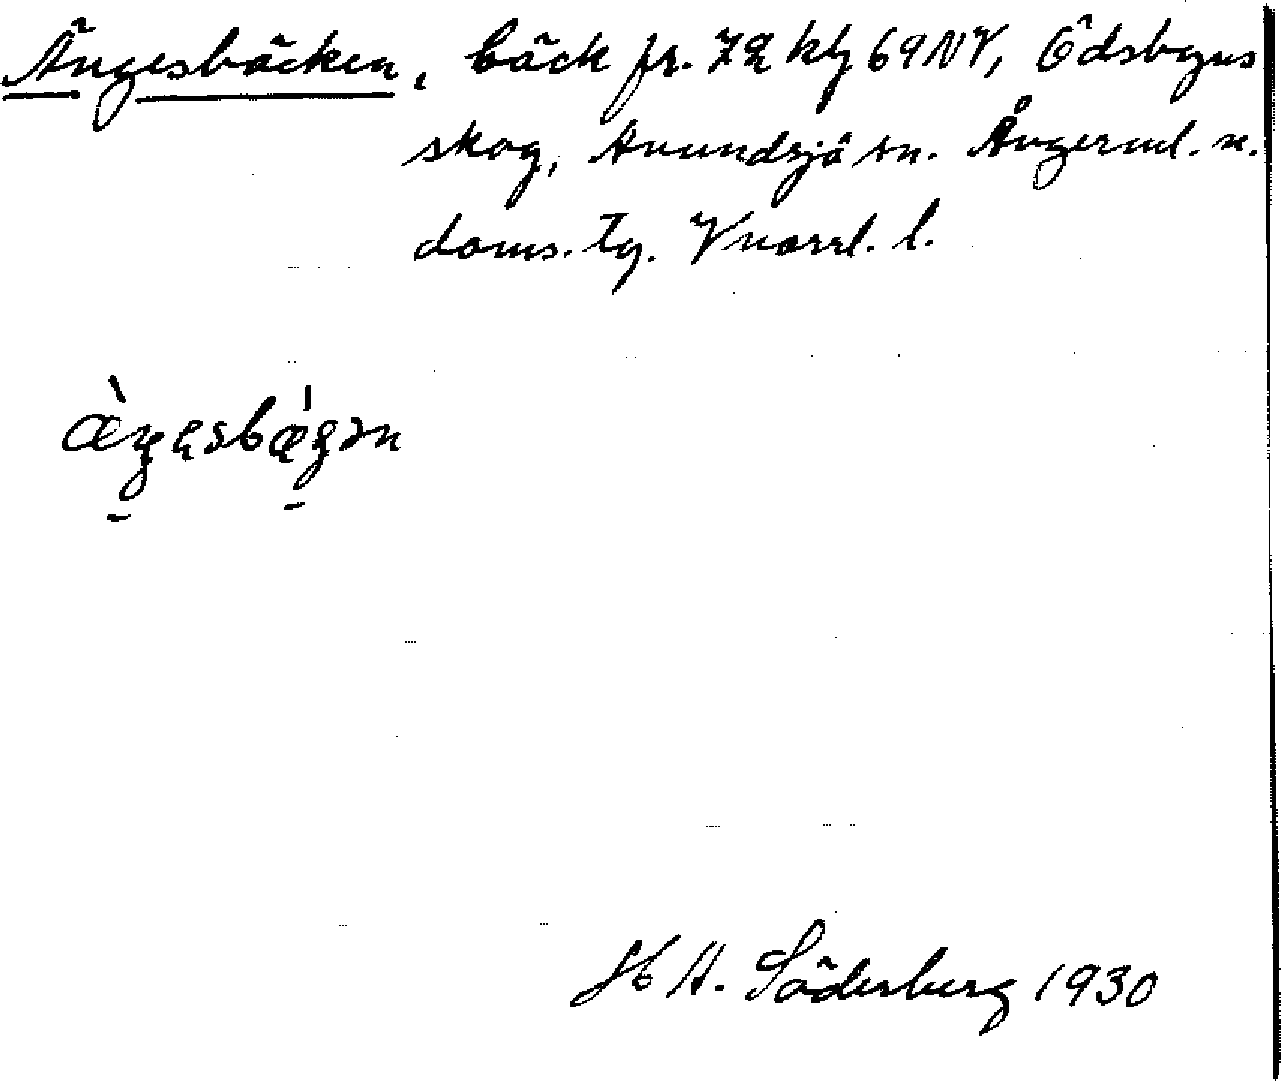 Ängesbäcken, bäck fr. 72 kbg 69 NV, Ödsbyns
skog, Anundsjö sn. Ångerml. n.
doms. tg. Vnorrl. l.
H A. Söderberg 1930